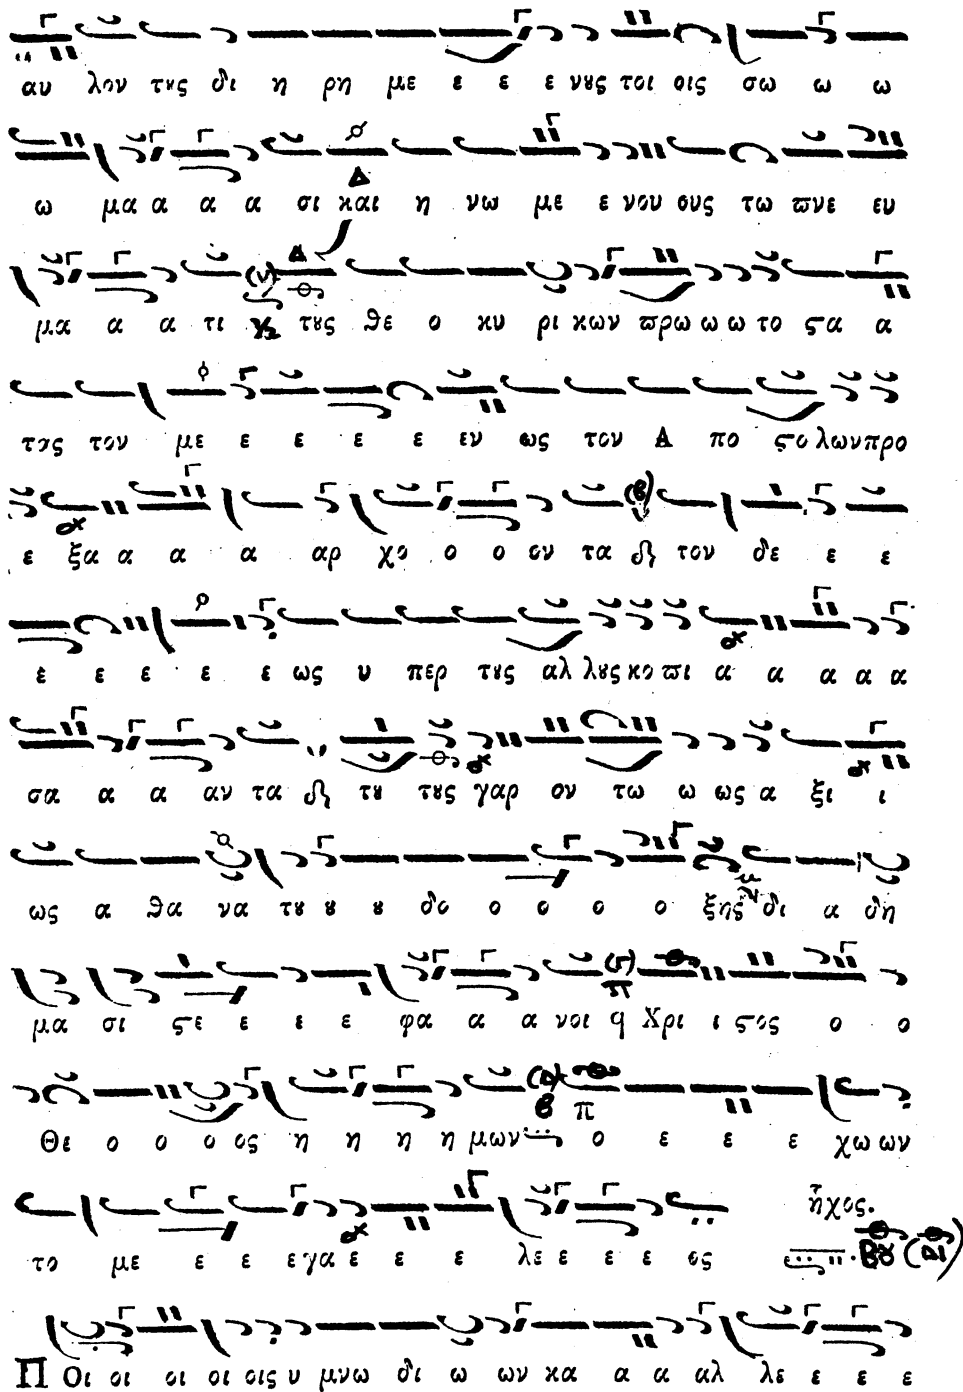 αυ λον τȣς δι η ρη με ε ε ε νȣς τοι οις σω ω ω
ω μα α α α σι και η νω με ε νου ους τω ϖνε ευ
μα α α τι τȣς ϑε ο κυ ρι κων ϖρω ω ω το ϛα α
τȣς τον με ε ε ε ε εν ως τον Α πο ϛο λων προ
ε ξα α α α αρ χο ο ο ον τα τον δε ε ε
ε ε ε ε ε ως υ περ τȣς αλ λȣς κο ϖι α α α α α
σα α α αν τα τȣ τȣς γαρ ον τω ω ως α ξι ι
ως α ϑα να τȣ ȣ ȣ δο ο ο ο ο ξης δι α δη
μα σι ϛε ε ε ε φα α α νοι q Χρι ι ϛος ο ο
Θε ο ο ο ος η η η η μων ο ε ε ε χω ων
ἦχος.
το με ε ε ε γα ε ε ε λε ε ε ε ος Βȣ (Δι)
Π Οι οι οι οι οις υ μνω δι ω ων κα α α αλ λε ε ε ε